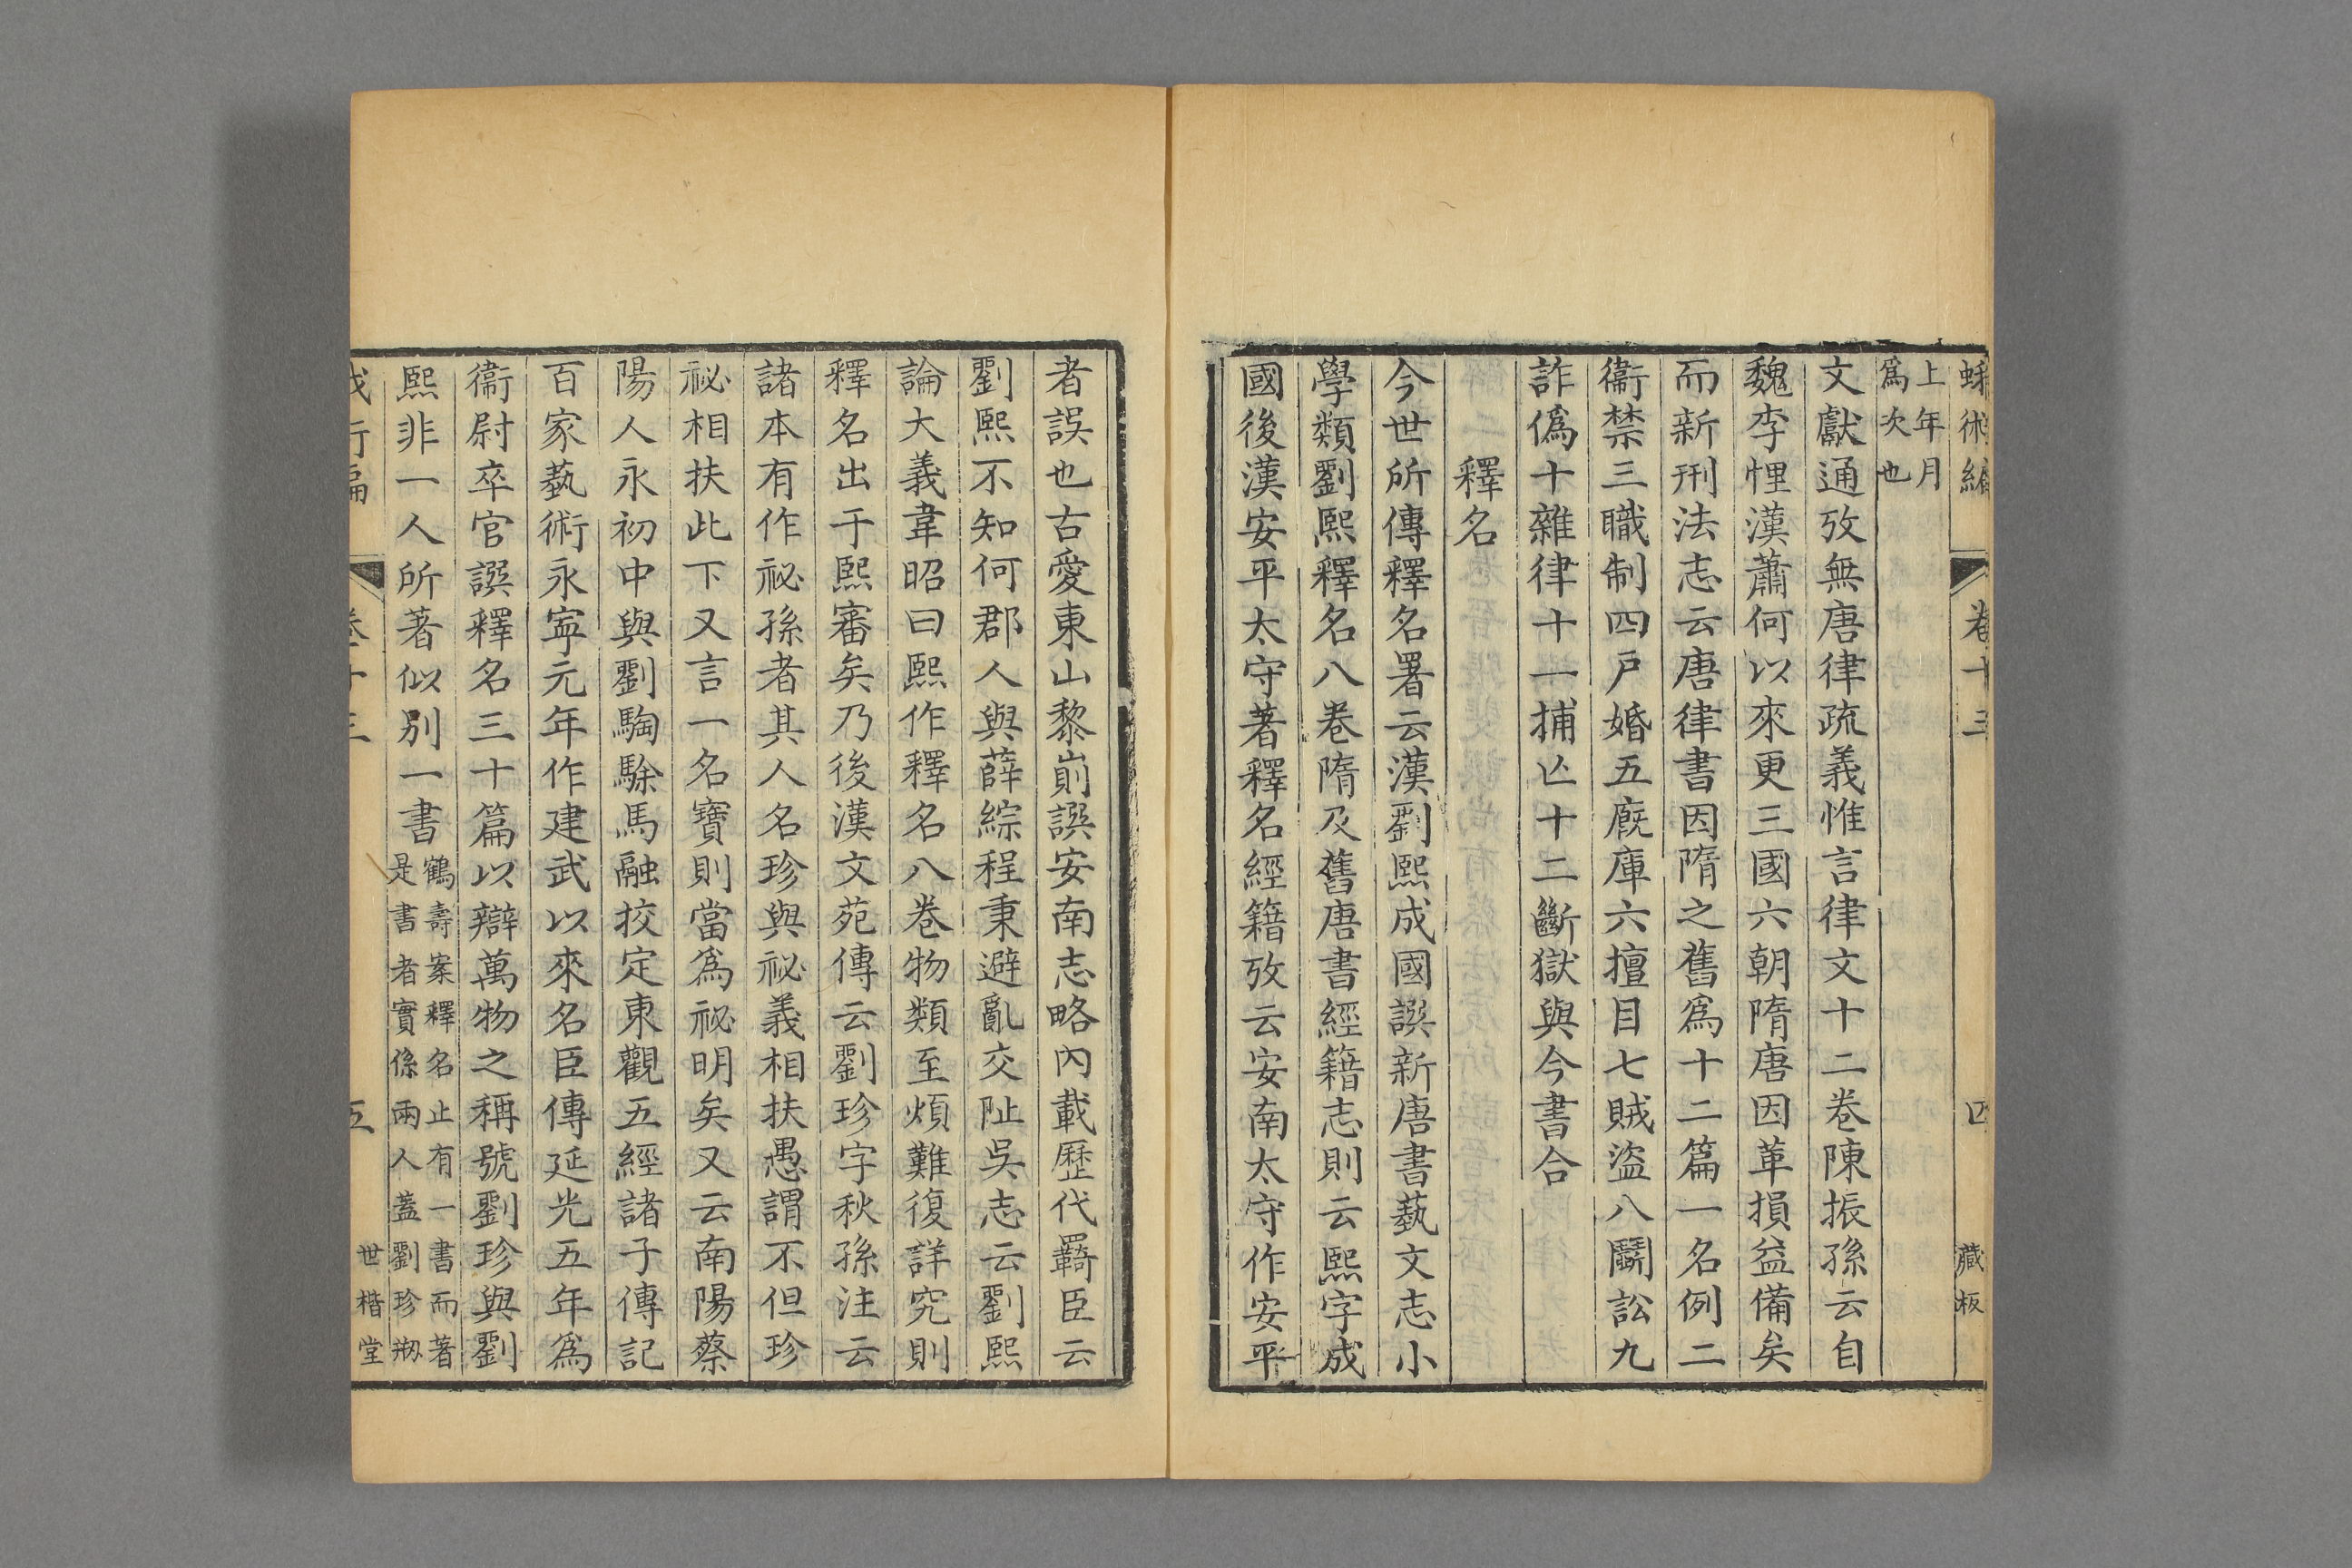 蛾術編 卷十三 四 藏板
上年月
爲次也
文獻通攷無唐律疏義惟言律文十二卷陳振孫云自
魏李悝漢蕭何以來更三國六朝隋唐因革損益備矣
而新刑法志云唐律書因隋之舊爲十二篇一名例二
衞禁三職制四戸婚五廐庫六擅目七賊盜八鬬訟九
詐僞十雜律十一捕亾十二斷獄與今書合
釋名
今世所傳釋名署云漢劉熙成國譔新唐書蓺文志小
學類劉熙釋名八卷隋及舊唐書經籍志則云熙字成
國後漢安平太守著釋名經籍攷云安南太守作安平
者誤也古愛東山黎崱譔安南志略內載歷代羇臣云
劉熙不知何郡人與薛綜程秉避亂交阯吳志云劉熙
論大義韋昭曰熙作釋名八卷物類至煩難復詳究則
釋名出于熙審矣乃後漢文苑傳云劉珍字秋孫注云
諸本有作祕孫者其人名珍與祕義相扶愚謂不但珍
祕相扶此下又言一名寶則當爲祕明矣又云南陽蔡
陽人永初中與劉騊駼馬融挍定東觀五經諸子傳記
百家蓺術永寧元年作建武以來名臣傳延光五年爲
衞尉卒官譔釋名三十篇以辯萬物之稱號劉珍與劉
熙非一人所著似別一書
鶴壽案釋名止有一書而著
是書者實係兩人蓋劉珍剏
蛾術編 卷十三 五 世楷堂